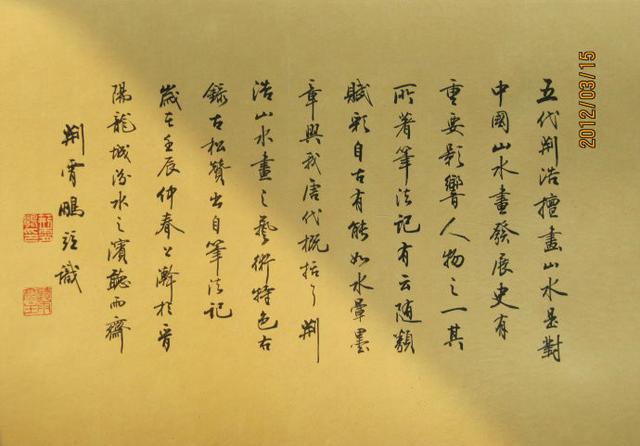 五代荆浩擅畫山水是對
中國山水畫發展史有
重要影響人物之一其
所著筆法記有云随類
賦彩自古有能如水暈墨
章興我唐代概括了荆
浩山水畫之藝術特色右
錄古松贊出自筆法記
歲在壬辰仲春上澣於晋
陽龍城汾水之濱聽雨齋
荆霄鵬并識
2012/03/15